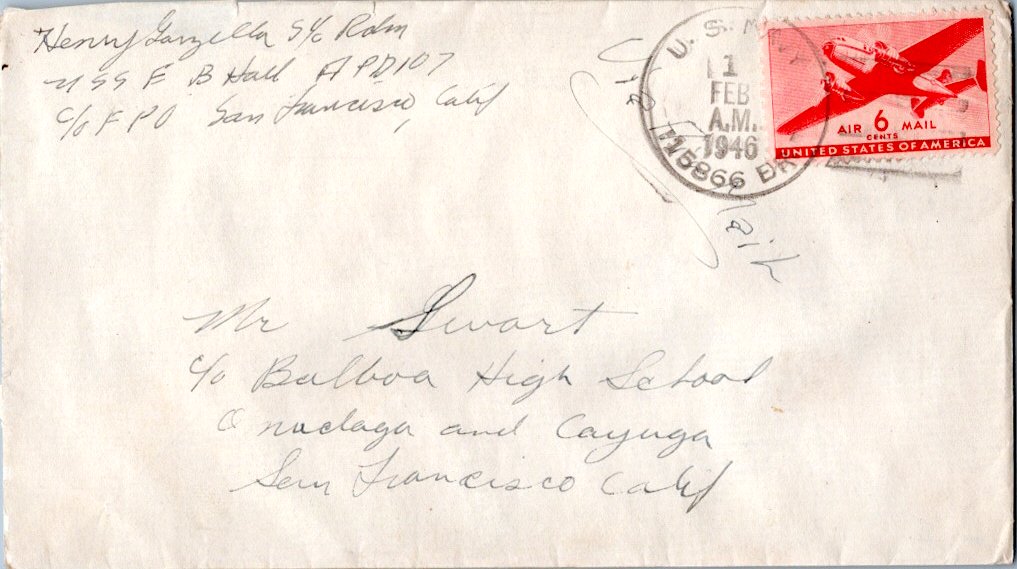 Henry Garzella S1/c Rdm
USS F B Hall APD107
c/o F P O San Francisco, Calif
U. S. NAVY
1
FEB
A.M.
1946
15866 BR.
AIR 6 MAIL
CENTS
UNITED STATES OF AMERICA
Air
Mail
Mr Swart
c/o Balboa High School
Onodaga and Cayuga
San Francisco Calif